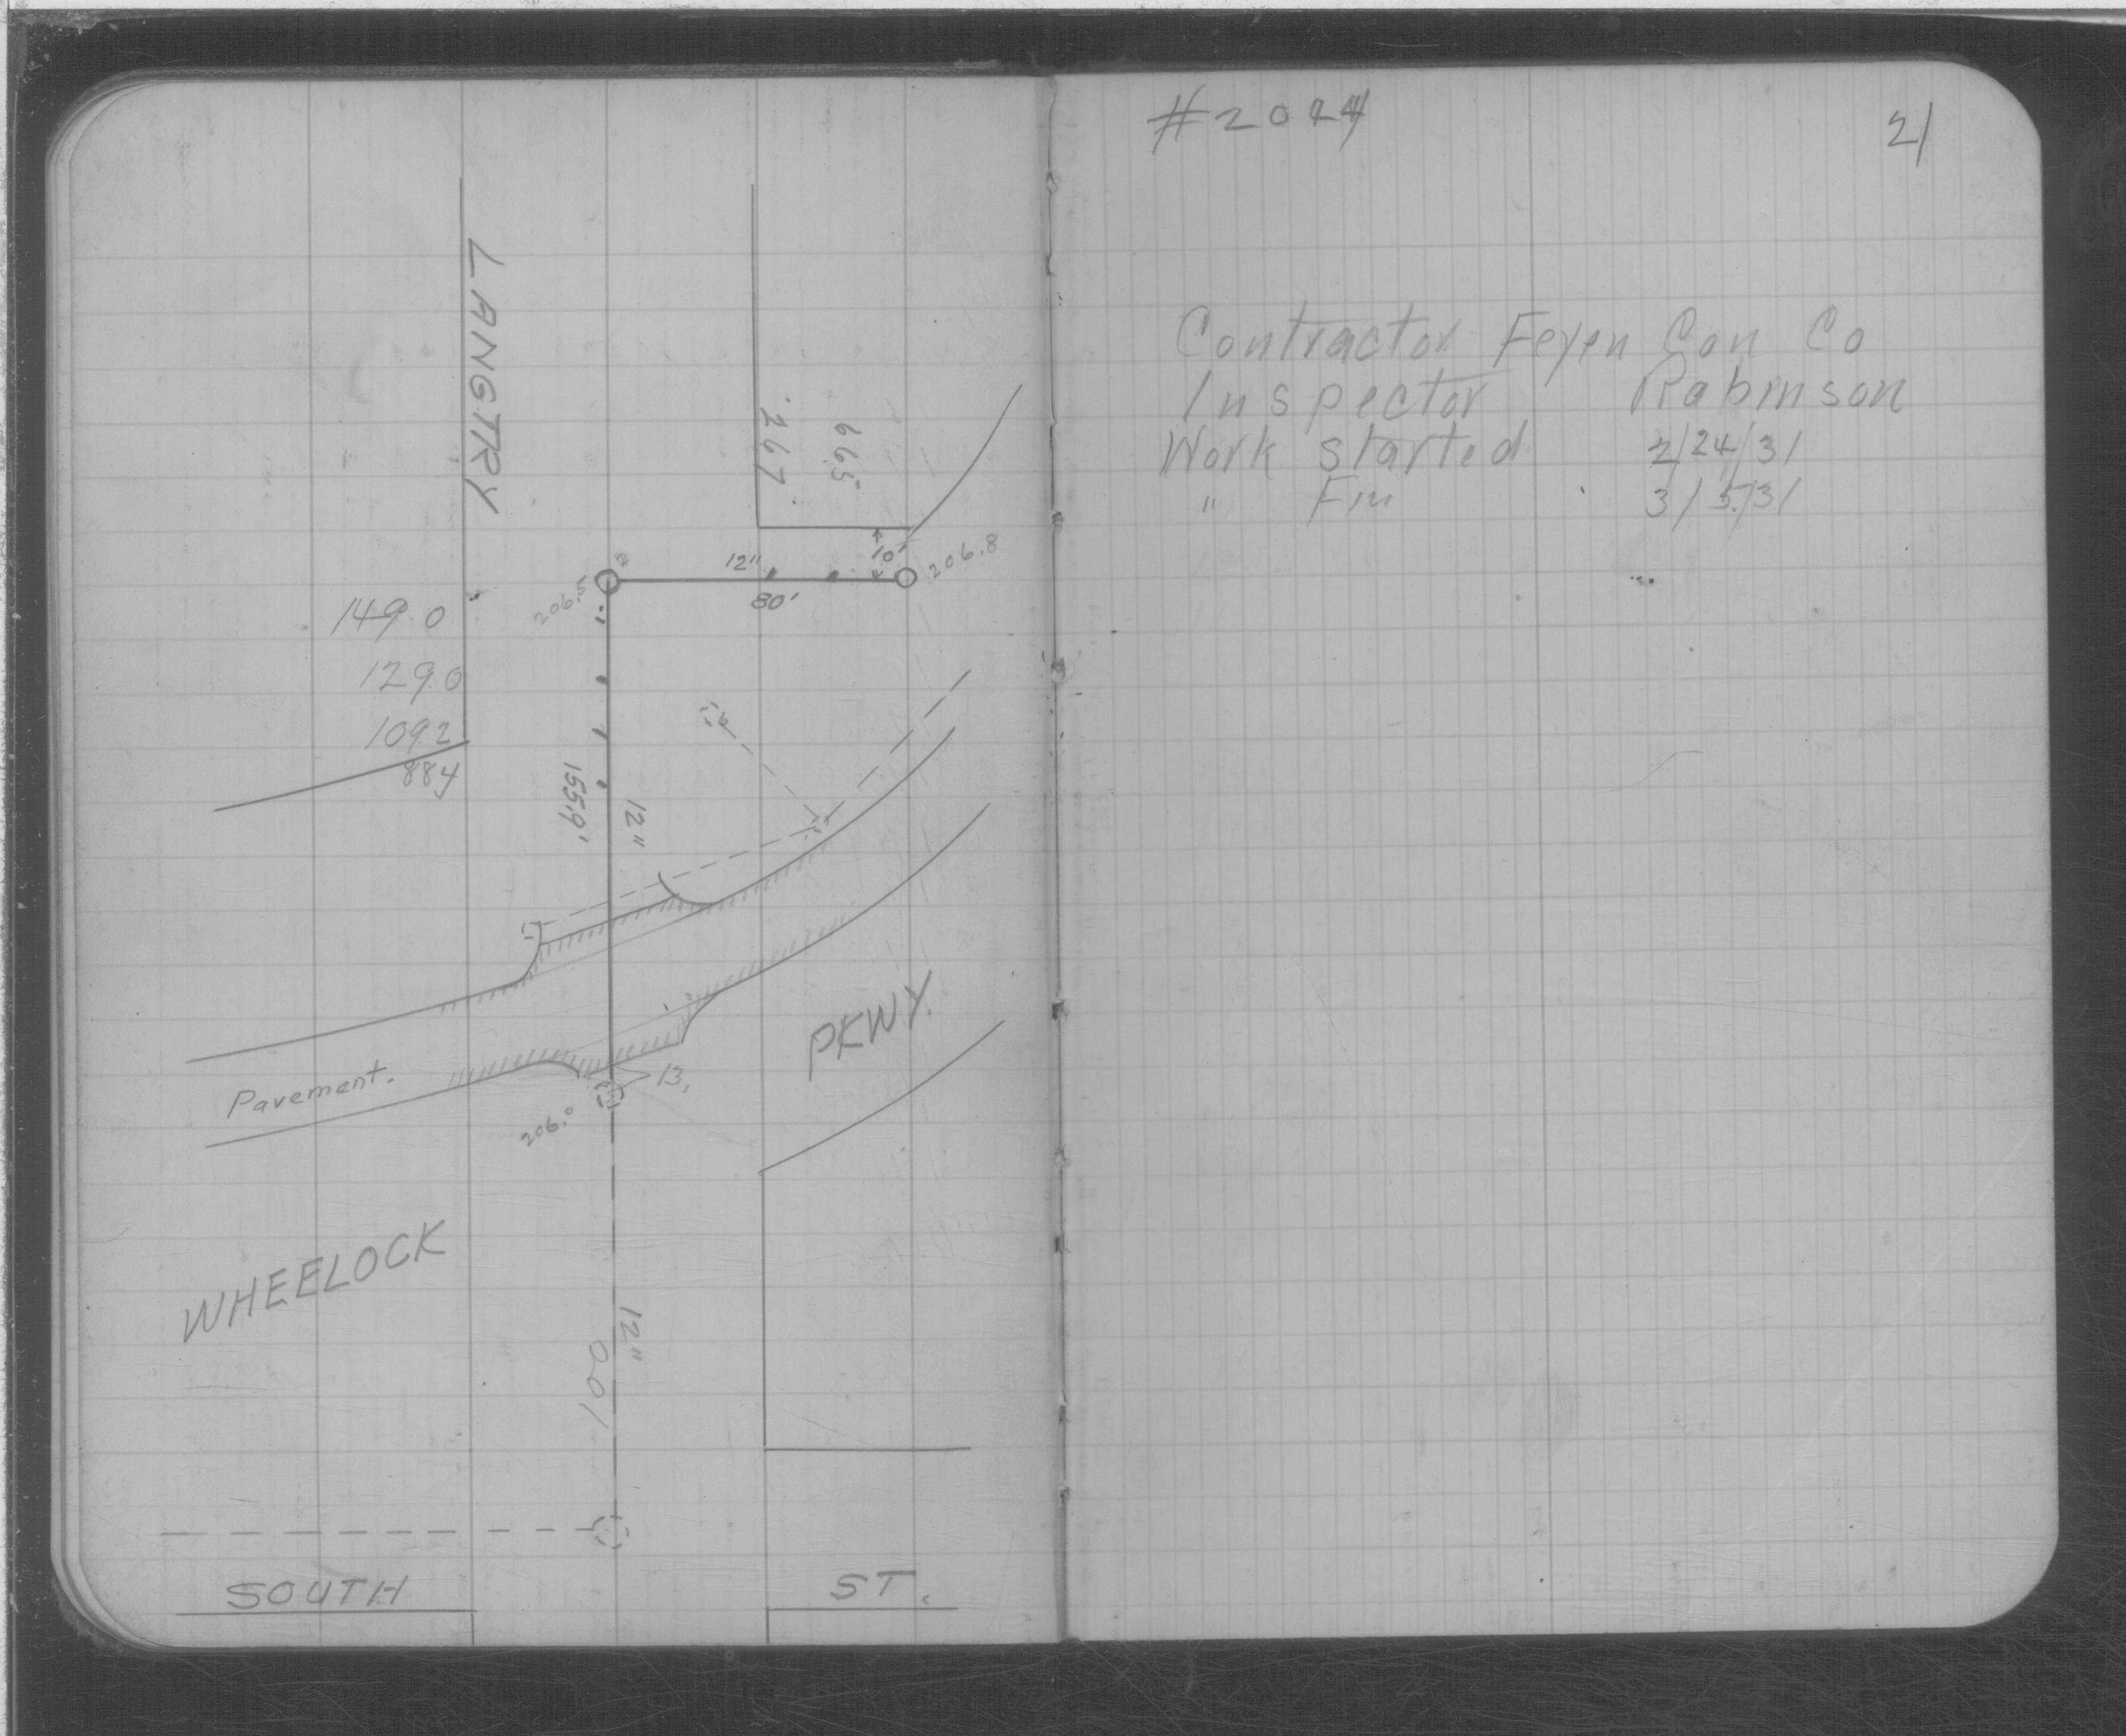 LANGTRY
267
665
10'
12"
206.8
80'
206.5
2
149.0
129.0
109.2
88.4
155.9'
12"
PKWY.
Pavement.
13
206.0
WHEELOCK
12"
100
SOUTH ST.
21
Contractor Feyen Con Co
Inspector Rabinson
Work started 2/24/31
" Fin 3/5/31